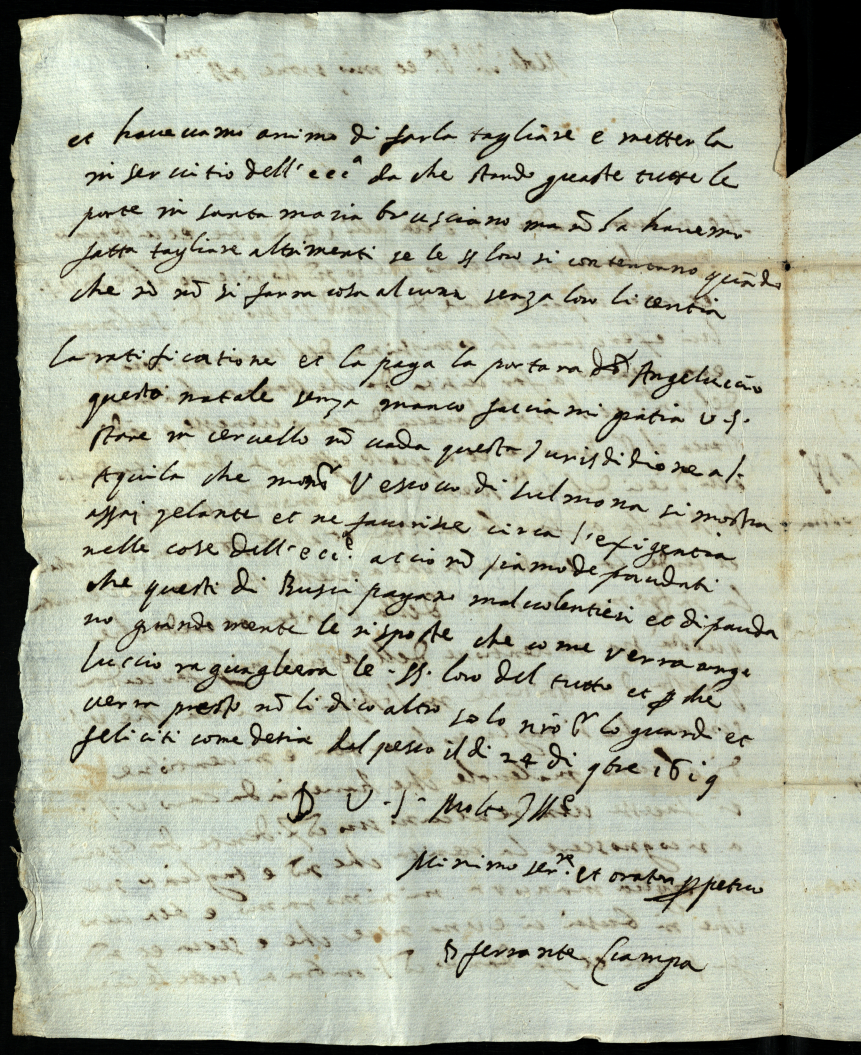 et haveuamo animo di farla tagliare e metter la
in seruitio dell'ecc.ª da che stando guaste tutte le
porte in santa maria brusciano ma nō la havemo
fatta tagliare altrimenti se le SS loro si contentano quādo
che nō nō si farra cosa alcuna senza loro licentia
la ratificatione et la paga la portara Angeluccio
questo natale senza manco facciami gratia V.S.
stare in ceruello nō vada questa Jurisdidione al
Aquila che mons.r Vescouo di Sulmona si mostra
assai zelante et ne fauorisse circa l'exigentia
nelle cose dell'ecc.ª accio nō siamo defraudati
che questi di Bussi pagano maluolentieri et difrauda
no grandemente le risposte che come verra ange
luccio raguagliera le SS. loro del tutto et p che
verra presto nō li dico altro solo nrō S.r lo guardi et
feliciti come desia dal pesco il di 24 di 9bre 1619
D V.S. Molto Ill.e
Minimo ser.re et orator ppetuo
D ferrante Ciampa